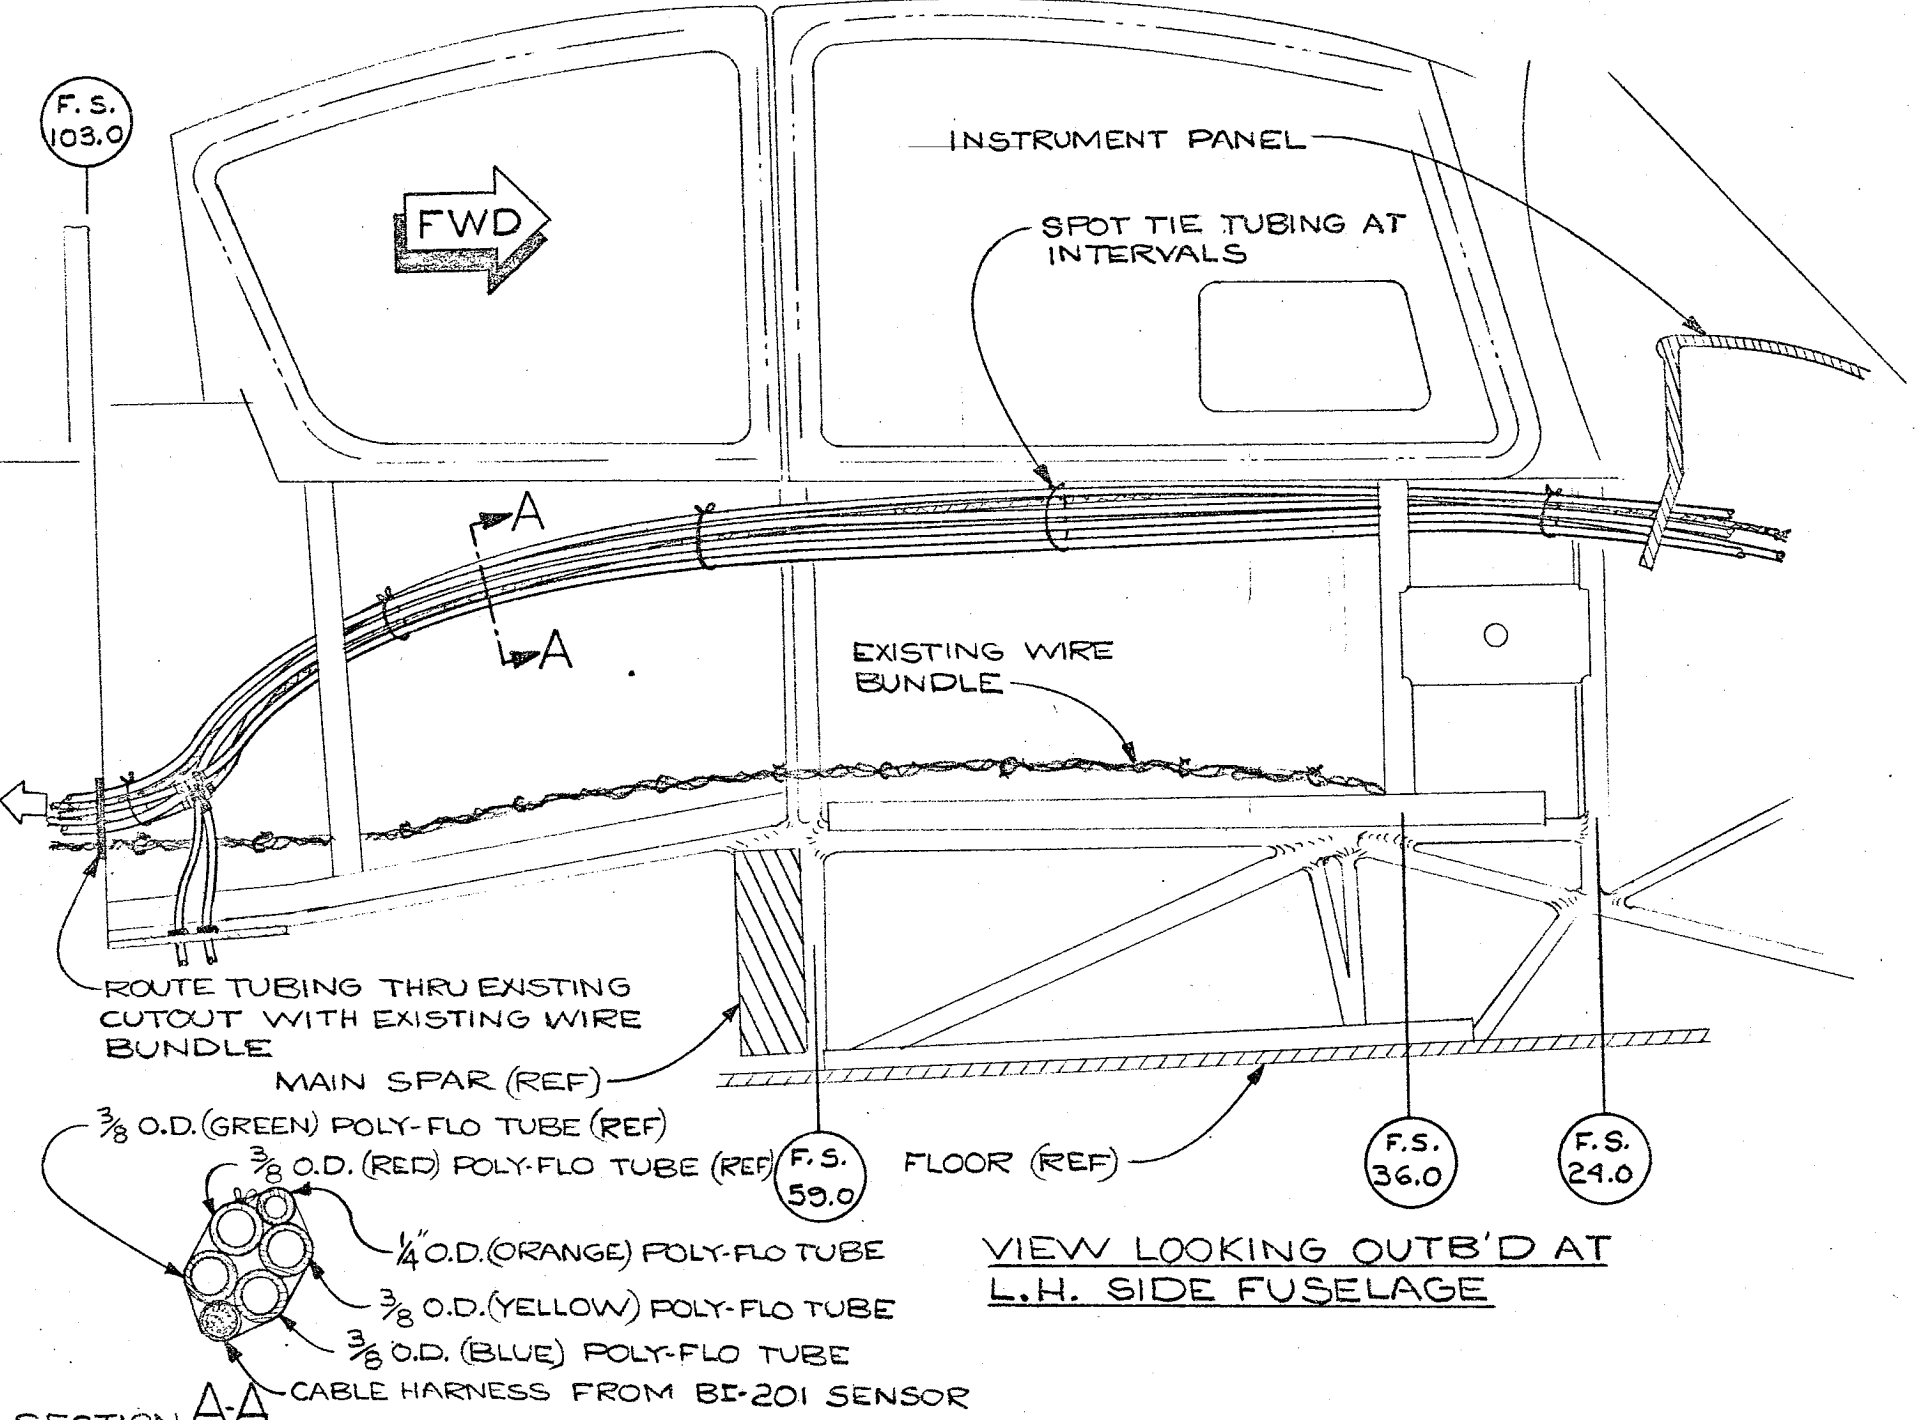 F.S.
103.0
INSTRUMENT PANEL
FWD
SPOT TIE TUBING AT
INTERVALS
A
A
EXISTING WIRE
BUNDLE
ROUTE TUBING THRU EXISTING
CUTOUT WITH EXISTING WIRE
BUNDLE
MAIN SPAR (REF)
3/8 O.D. (GREEN) POLY-FLO TUBE (REF)
3/8 O.D. (RED) POLY-FLO TUBE (REF)
F.S.
59.0
FLOOR (REF)
F.S.
36.0
F.S.
24.0
1/4" O.D. (ORANGE) POLY-FLO TUBE
3/8 O.D. (YELLOW) POLY-FLO TUBE
3/8 O.D. (BLUE) POLY-FLO TUBE
CABLE HARNESS FROM BI-201 SENSOR
VIEW LOOKING OUTB'D AT
L.H. SIDE FUSELAGE
SECTION A-A